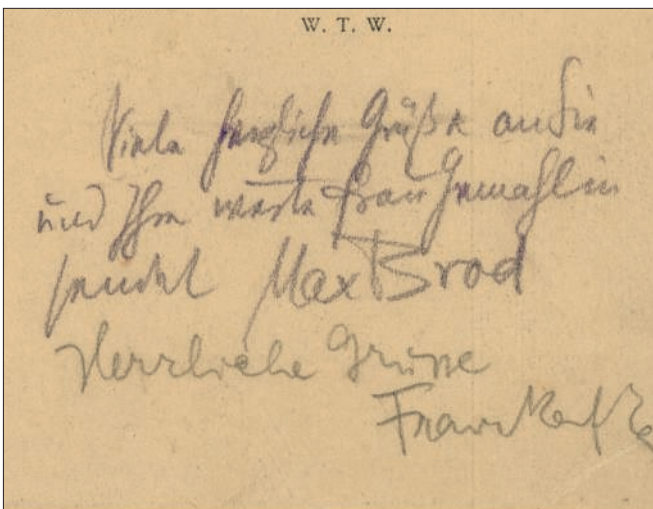 W. T. W.
Viele herzliche Grüße an Sie
und Ihre werte Frau Gemahlin
sendet Max Brod
Herzliche Grüsse
Franz Kafka